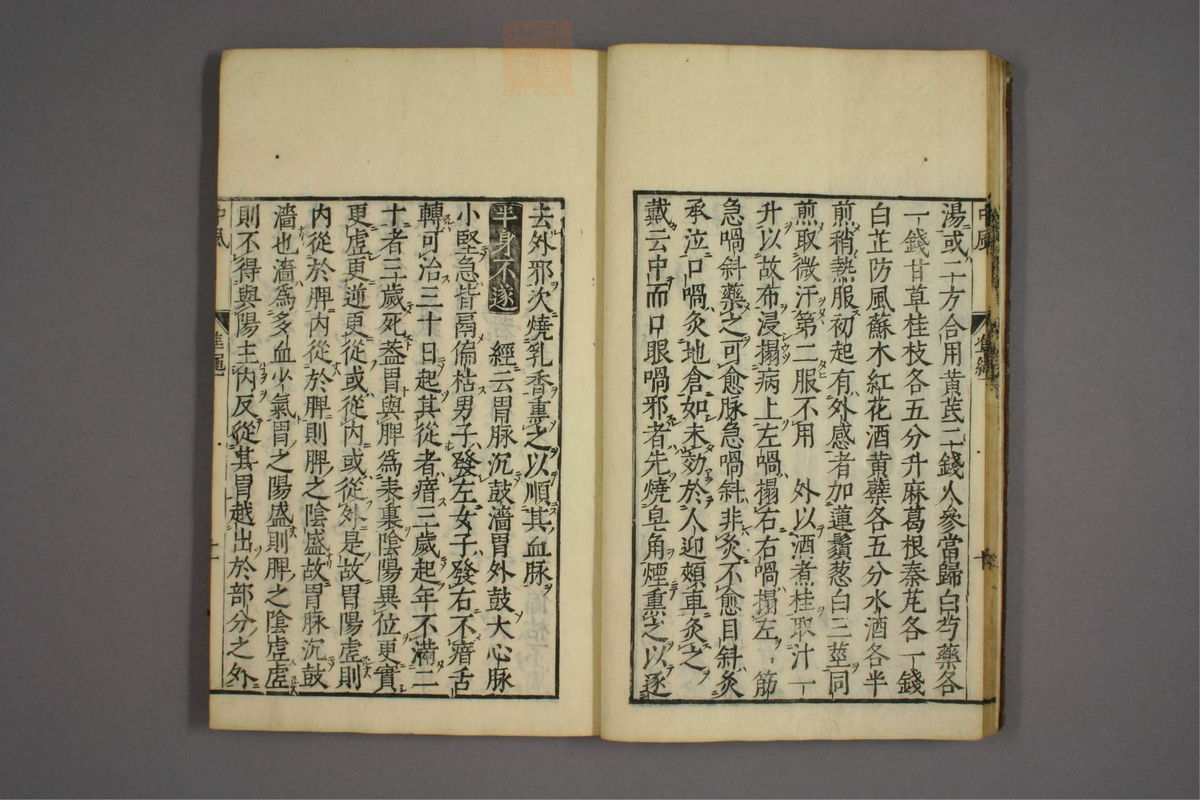 湯或二十方合用黃芪二錢人參當歸白芍藥各
一錢甘草桂枝各五分升麻葛根秦艽各一錢
白芷防風蘇木紅花酒黃蘗各五分水酒各半
煎稍熱服初起有外感者加蓮鬚葱白三莖同
煎取微汗第二服不用　外以酒煮桂取汁一
升以故布浸搨病上左喎搨右右喎搨左　筋
急喎斜藥之可愈脉急喎斜非灸不愈目斜灸
承泣口喎灸地倉如未効於人迎頰車灸之
戴云中而口眼喎邪者先燒皂角煙熏之以逐
去外邪次燒乳香熏之以順其血脉
半身不遂　經云胃脉沉鼓濇胃外鼓大心脉
小堅急皆鬲偏枯男子發左女子發右不瘖舌
轉可治三十日起其從者瘖三歲起年不滿二
十者三歲死葢胃與脾爲表裏陰陽異位更實
更虛更逆更從或從內或從外是故胃陽虛則
內從於脾內從於脾則脾之陰盛故胃脉沉鼓
濇也濇爲多血少氣胃之陽盛則脾之陰虛虛
則不得與陽主內反從其胃越出於部分之外
中風